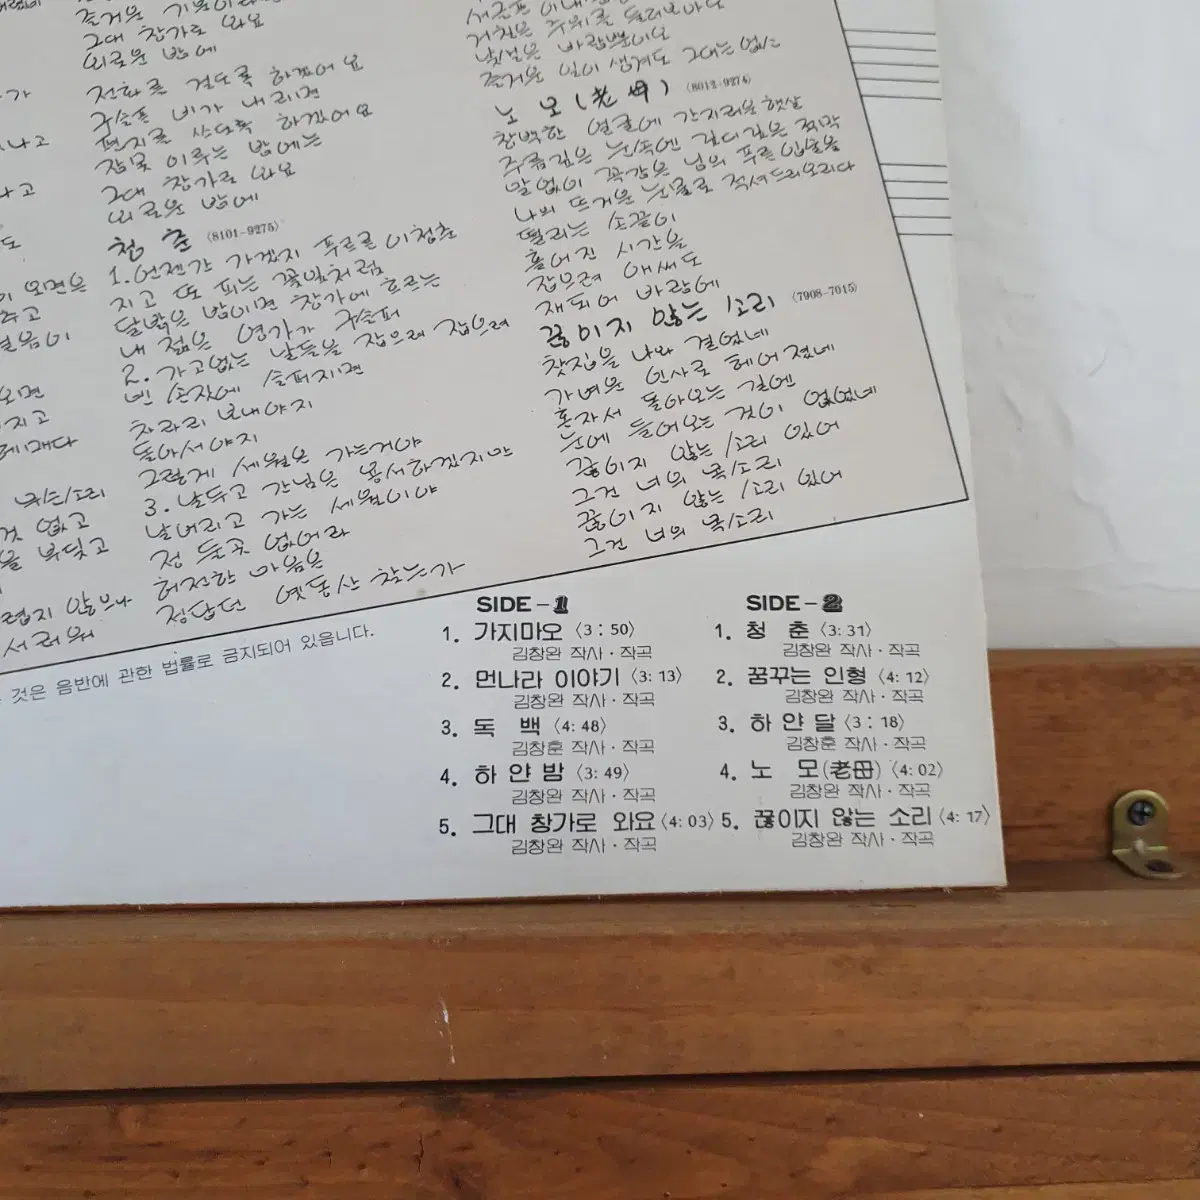 즐거운
그대 창가로 와요
외로운 밤에
전화를 걸도록 하겠어요
구슬픈 비가 내리면
편지를 쓰도록 하겠어요
잠못 이루는 밤에는
그대 창가로 와요
외로운 밤에
청 춘 〈8101-9275〉
1. 언젠간 가겠지 푸르른 이 청춘
지고 또 피는 꽃잎처럼
달밝은 밤이면 창가에 흐르는
내 젊은 영가가 구슬퍼
2. 가고없는 날들을 잡으려 잡으려
빈 손짓에 슬퍼지면
차라리 보내야지
돌아서야지
그렇게 세월은 가는거야
3. 날두고 간님은 용서하겠지만
날버리고 가는 세월이야
정 둘곳 없어라
허전한 마음은
정답던 옛동산 찾는가
낯설은 바람뿐이오
즐거운 일이 생겨도 그대는 없는
노 모 (老 母) 〈8012-9274〉
창백한 얼굴에 간지러운 햇살
주름깊은 눈속에 깊디깊은 적막
말없이 꼭감은 님의 푸른 입술을
나의 뜨거운 눈물로 적셔드리오리다
떨리는 손끝이
흩어진 시간을
잡으려 애써도
재되어 바람에
끊이지 않는 소리 〈7908-7015〉
찻집을 나와 걸었네
가벼운 인사로 헤어졌네
혼자서 돌아오는 길엔
눈에 들어오는 것이 없었네
끊이지 않는 소리 있어
그건 너의 목소리
끊이지 않는 소리 있어
그건 너의 목소리
것은 음반에 관한 법률로 금지되어 있읍니다.
SIDE-1
1. 가지마오 〈3:50〉
김창완 작사·작곡
2. 먼나라 이야기 〈3:13〉
김창완 작사·작곡
3. 독 백 〈4:48〉
김창훈 작사·작곡
4. 하 얀 밤 〈3:49〉
김창완 작사·작곡
5. 그대 창가로 와요 〈4:03〉
김창완 작사·작곡
SIDE-2
1. 청 춘 〈3:31〉
김창완 작사·작곡
2. 꿈꾸는 인형 〈4:12〉
김창완 작사·작곡
3. 하 얀 달 〈3:18〉
김창훈 작사·작곡
4. 노 모 (老母) 〈4:02〉
김창완 작사·작곡
5. 끊이지 않는 소리 〈4:17〉
김창완 작사·작곡